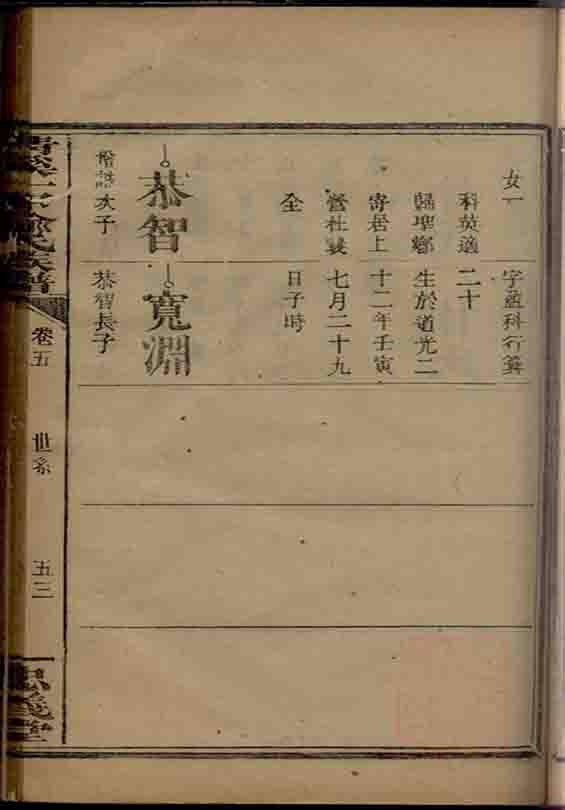 女一
科英適
歸聖鄉
寄居上
營杜
仝
恭智
次子
字盈科行第
二十
生於道光二
十二年壬寅
七月二十九
日子時
寬淵
恭智長子
氏族譜
卷五
世系
五三
義堂